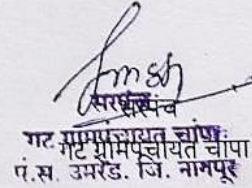 सरपंच
गट ग्रामपंचायत चांपा
पं.स. उमरेड. जि. नागपूर